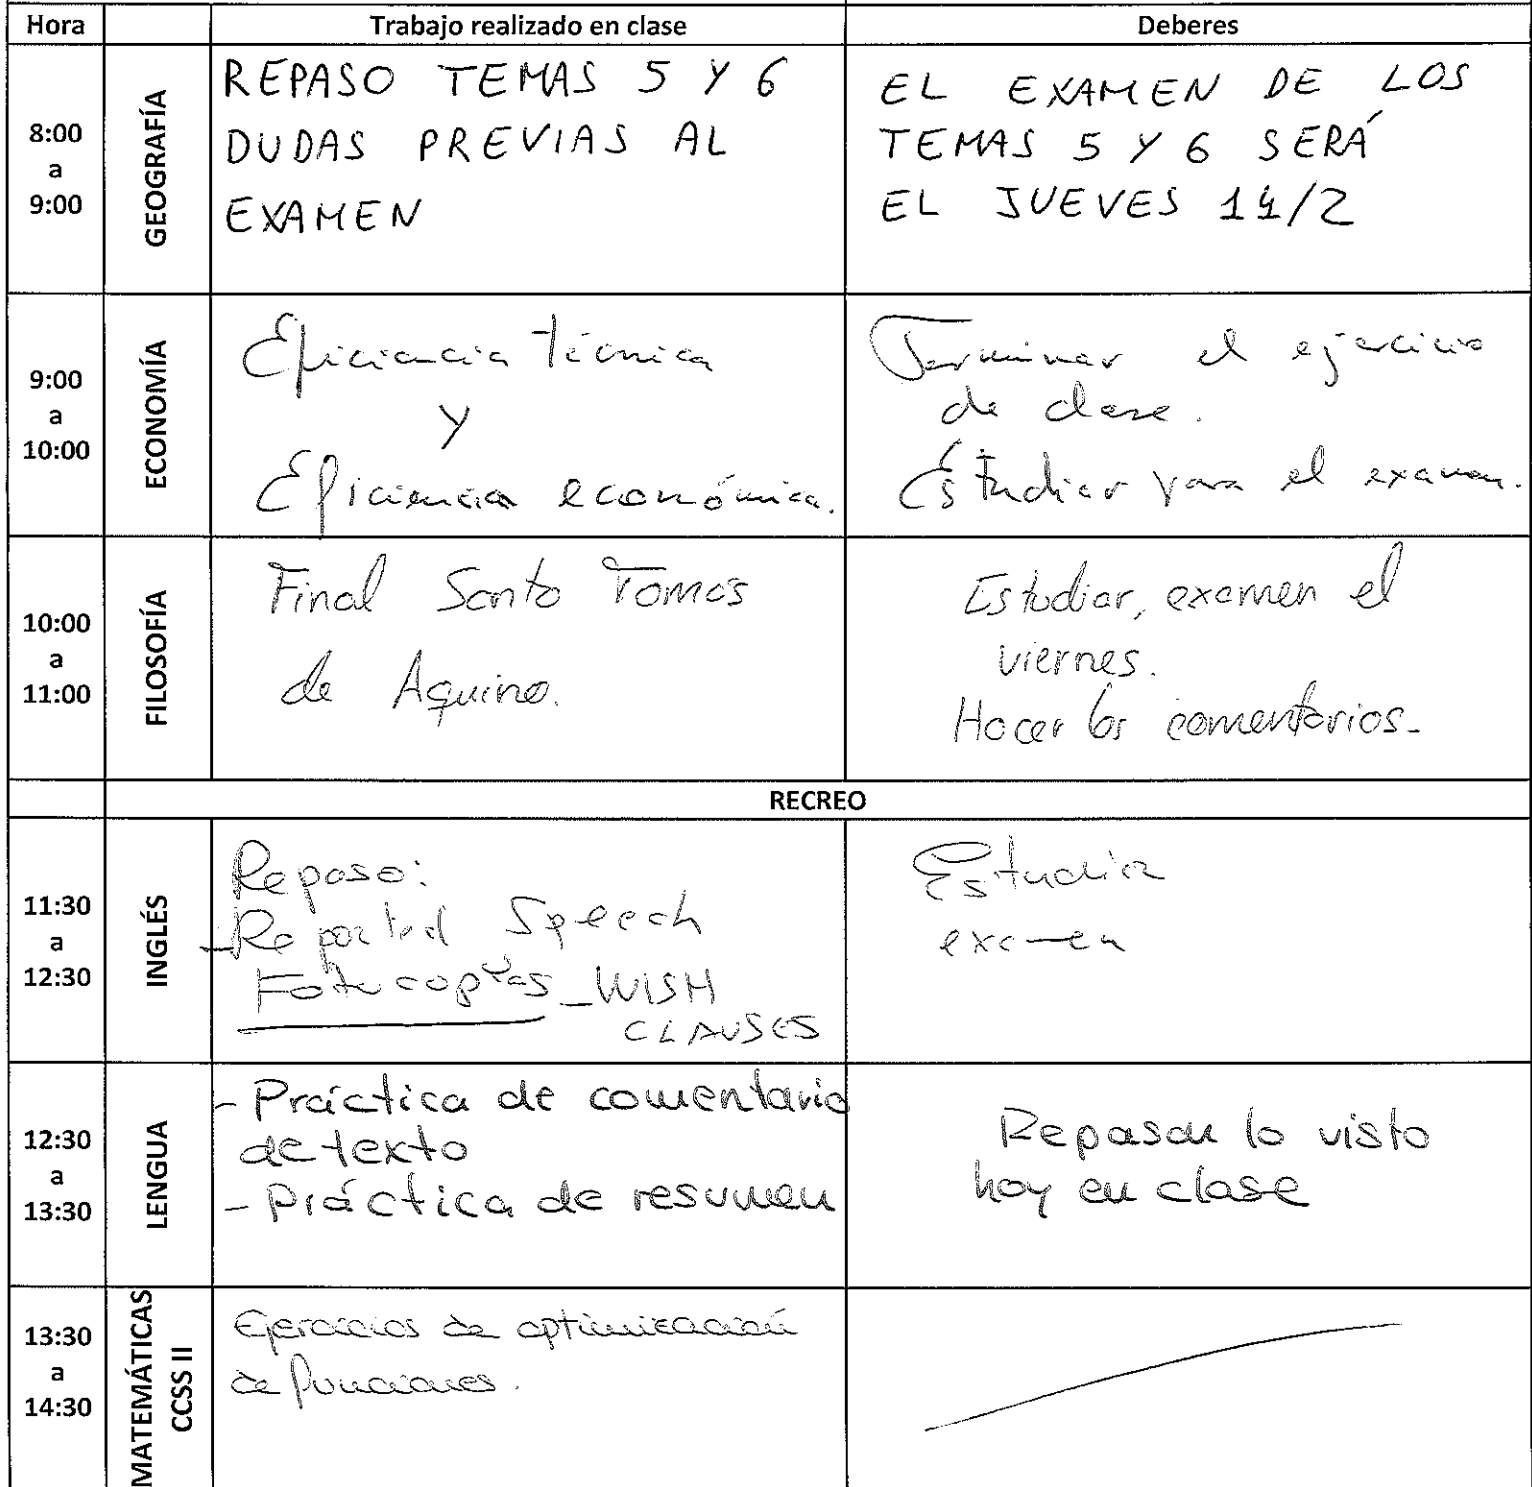 Hora Trabajo realizado en clase Deberes
8:00
a
9:00
GEOGRAFÍA
REPASO TEMAS 5 Y 6
DUDAS PREVIAS AL
EXAMEN
EL EXAMEN DE LOS
TEMAS 5 Y 6 SERÁ
EL JUEVES 14/2
9:00
a
10:00
ECONOMÍA
Eficiencia técnica
y
Eficiencia económica.
Terminar el ejercicio
de clase.
Estudiar para el examen.
10:00
a
11:00
FILOSOFÍA
Final Santo Tomas
de Aquino.
Estudiar, examen el
viernes.
Hacer los comentarios.
RECREO
11:30
a
12:30
INGLÉS
Repaso:
- Reported Speech
Fotocopias - WISH
CLAUSES
Estudiar
examen
12:30
a
13:30
LENGUA
- Práctica de comentario
de texto
- Práctica de resumen
Repasar lo visto
hoy en clase
13:30
a
14:30
MATEMÁTICAS
CCSS II
Ejercicios de optimización
de funciones.